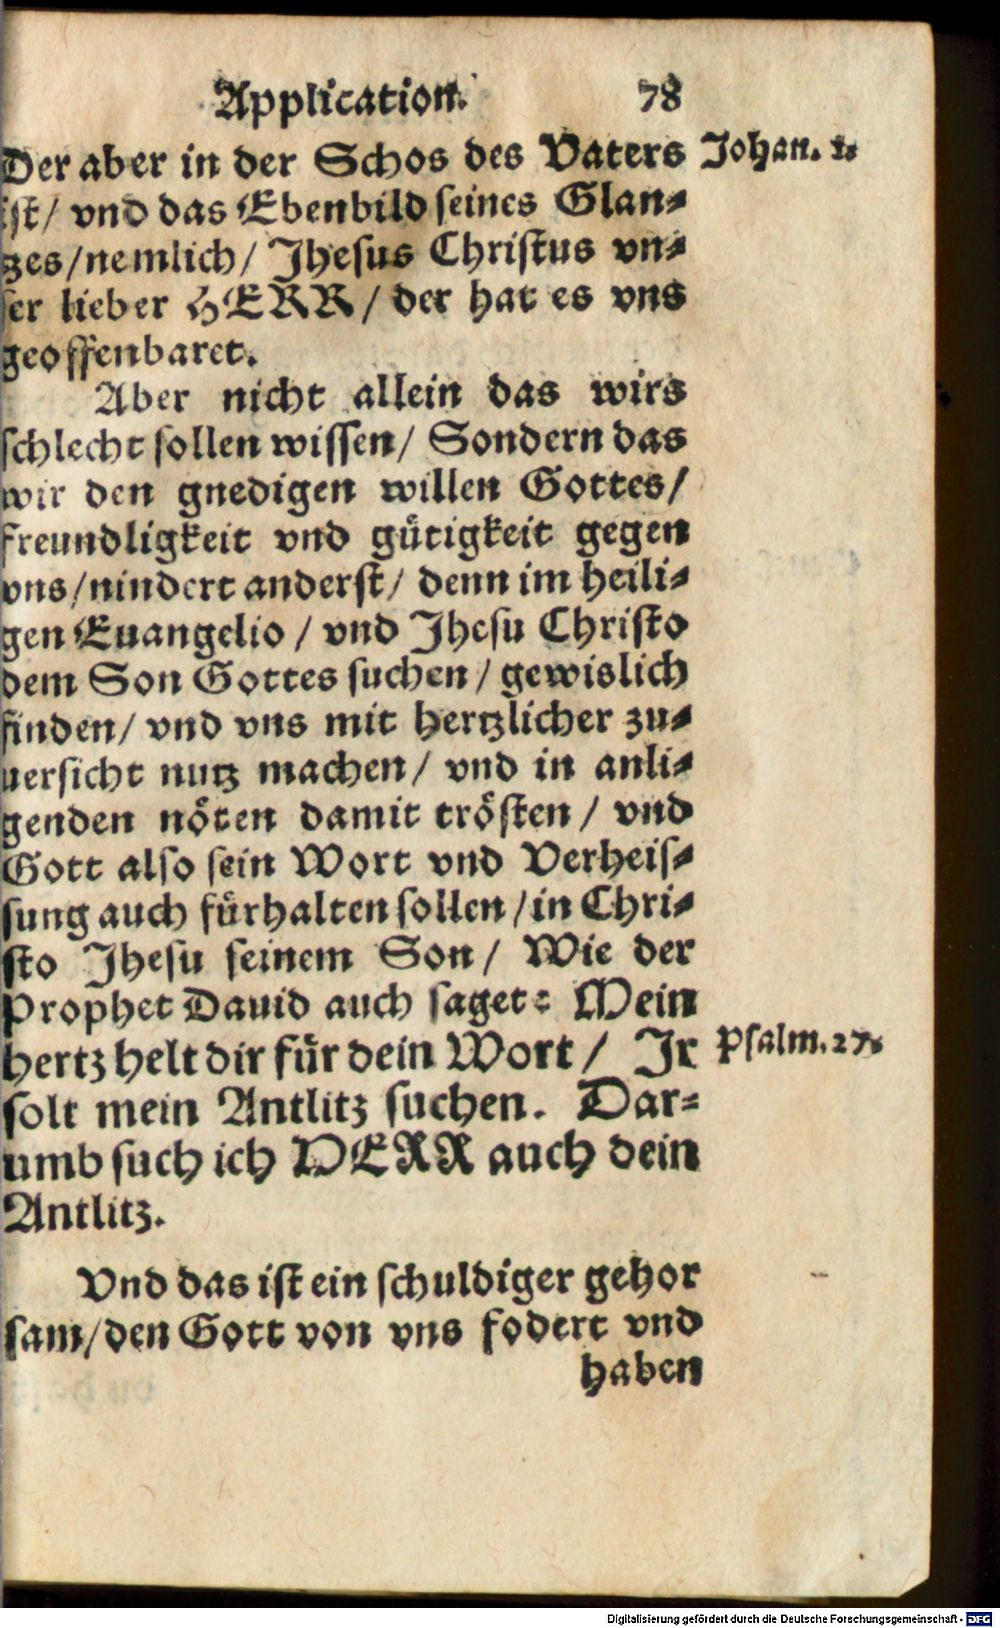 Application. 78
Der aber in der Schos des Vaters Johan. 1.
ist/ vnd das Ebenbild seines Glan-
zes/nemlich/ Jhesus Christus vn-
ser lieber HERR/ der hat es vns
geoffenbaret.
Aber nicht allein das wirs
schlecht sollen wissen/ Sondern das
wir den gnedigen willen Gottes/
freundligkeit vnd gütigkeit gegen
vns/nindert anderst/ denn im heili-
gen Euangelio/ vnd Jhesu Christo
dem Son Gottes suchen/ gewislich
finden/ vnd vns mit hertzlicher zu-
uersicht nutz machen/ vnd in anli-
genden nöten damit trösten/ vnd
Gott also sein Wort vnd Verheis-
sung auch fürhalten sollen/in Chri-
sto Jhesu seinem Son/ Wie der
Prophet Dauid auch saget: Mein
hertz helt dir für dein Wort/ Jr Psalm. 27.
solt mein Antlitz suchen. Dar-
umb such ich HERR auch dein
Antlitz.
Vnd das ist ein schuldiger gehor
sam/den Gott von vns fodert vnd
haben
Digitalisierung gefördert durch die Deutsche Forschungsgemeinschaft - DFG